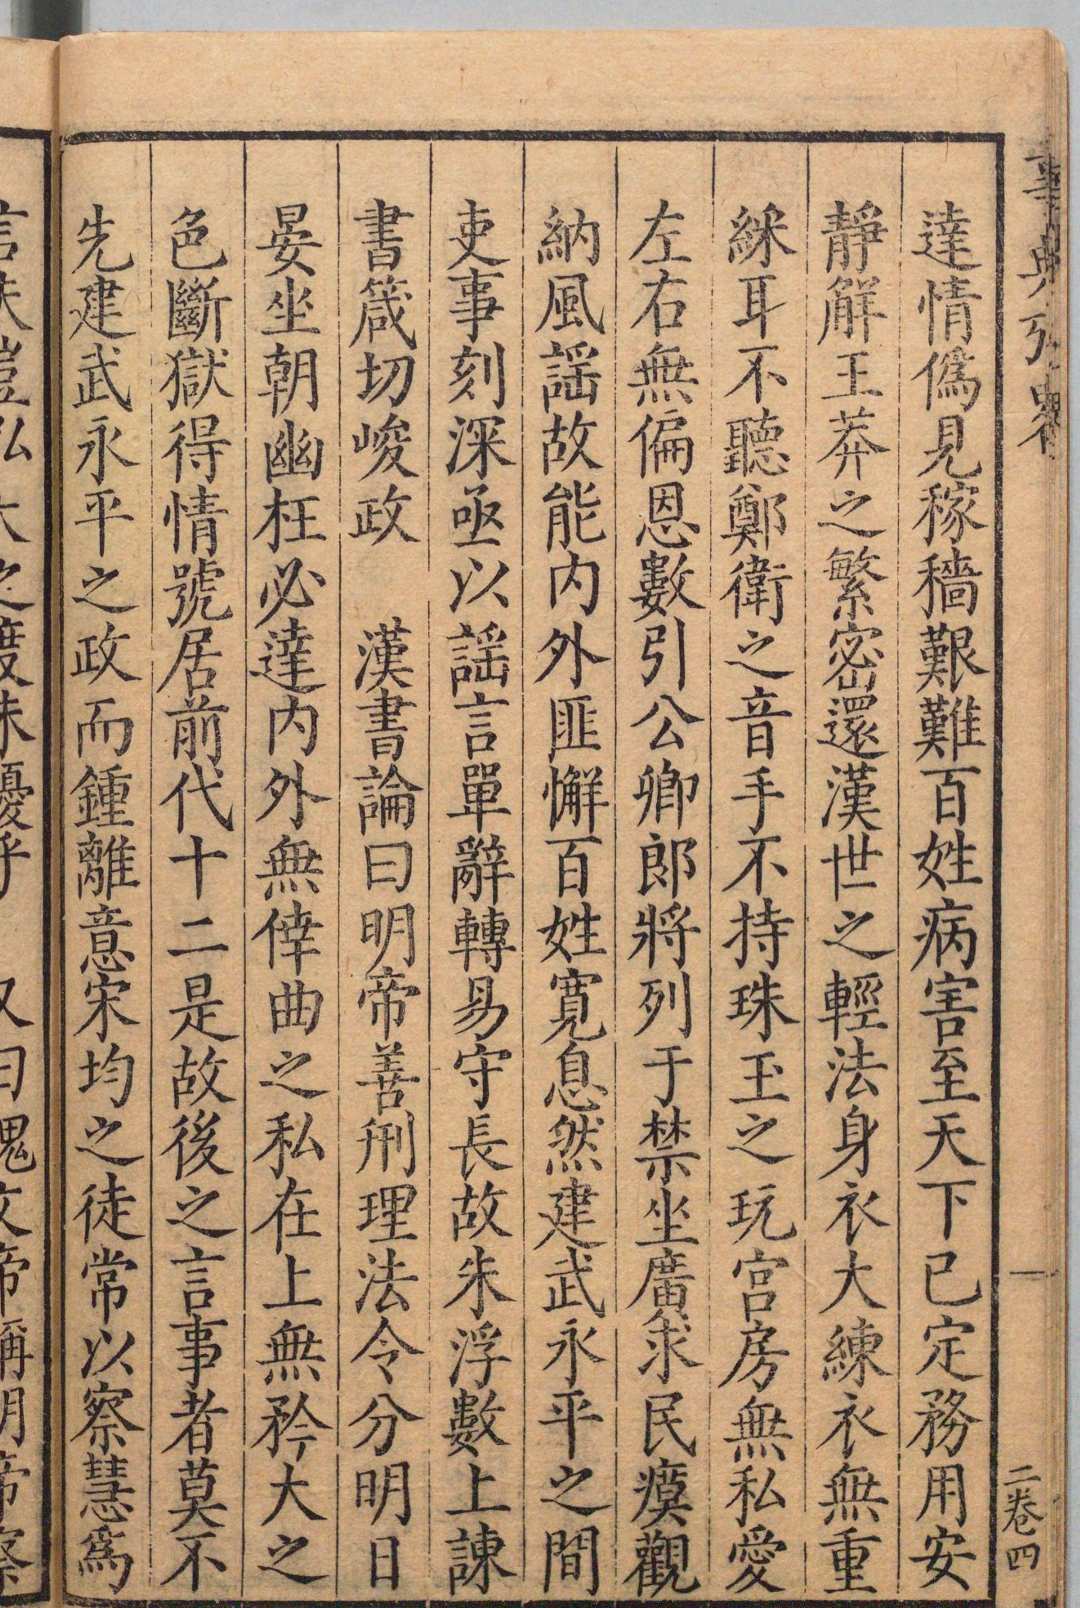 達情僞見稼穡艱難百姓病害至天下已定務用安
靜解王莽之繁密還漢世之輕法身衣大練衣無重
綵耳不聽鄭衛之音手不持珠玉之玩宮房無私愛
左右無偏恩數引公卿郎將列于禁坐廣求民瘼觀
納風謡故能内外匪懈百姓寛息然建武永平之間
吏事刻深亟以謡言單辭轉易守長故朱浮數上諫
書箴切峻政　漢書論曰明帝善刑理法令分明日
晏坐朝幽枉必達内外無倖曲之私在上無矜大之
色斷獄得情號居前代十二是故後之言事者莫不
先建武永平之政而鍾離意宋均之徒常以察慧爲
二卷四
大之度
又曰魏文帝稱明帝察